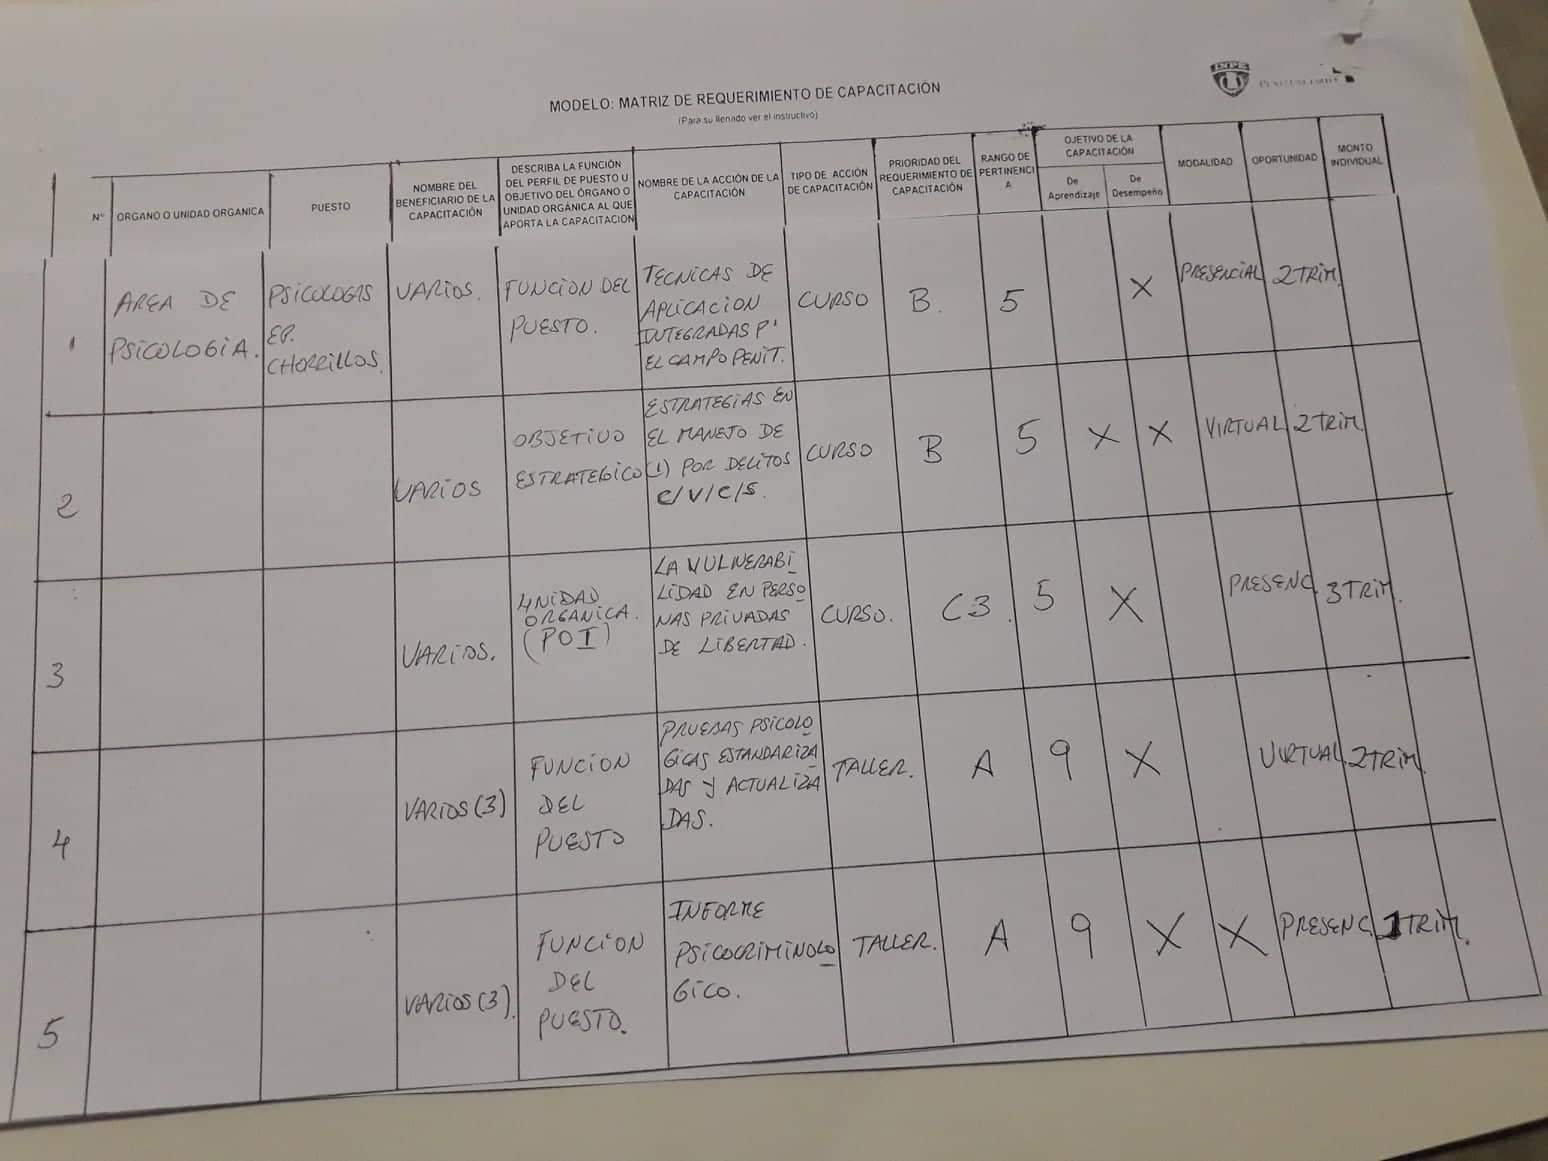 INPE
MODELO: MATRIZ DE REQUERIMIENTO DE CAPACITACIÓN
(Para su llenado ver el instructivo)
N°
ORGANO O UNIDAD ORGANICA
PUESTO
NOMBRE DEL
BENEFICIARIO DE LA
CAPACITACIÓN
DESCRIBA LA FUNCIÓN
DEL PERFIL DE PUESTO U
OBJETIVO DEL ÓRGANO O
UNIDAD ORGÁNICA AL QUE
APORTA LA CAPACITACION
NOMBRE DE LA ACCIÓN DE LA
CAPACITACIÓN
TIPO DE ACCIÓN
DE CAPACITACIÓN
PRIORIDAD DEL
REQUERIMIENTO DE
CAPACITACIÓN
RANGO DE
PERTINENCI
A
OJETIVO DE LA
CAPACITACIÓN
De
Aprendizaje
De
Desempeño
MODALIDAD
OPORTUNIDAD
MONTO
INDIVIDUAL
1
AREA DE
PSICOLOGIA.
PSICOLOGAS
EP.
CHORRILLOS.
VARIOS.
FUNCION DEL
PUESTO.
TECNICAS DE
APLICACION
INTEGRADAS P'
EL CAMPO PENIT.
CURSO
B.
5
X
PRESENCIAL
2 TRIM.
2
VARIOS
OBJETIVO
ESTRATEGICO
ESTRATEGIAS EN
EL MANEJO DE
(1) POR DELITOS
C/V/C/S.
CURSO
B
5
X
X
VIRTUAL
2 TRIM.
3
VARIOS.
UNIDAD
ORGANICA.
(POI)
LA VULNERABI
LIDAD EN PERSO
NAS PRIVADAS
DE LIBERTAD.
CURSO.
C3.
5
X
PRESENC.
3 TRIM.
4
VARIOS (3)
FUNCION
DEL
PUESTO
PRUEBAS PSICOLO
GICAS ESTANDARIZA
DAS Y ACTUALIZA
DAS.
TALLER.
A
9
X
VIRTUAL
2 TRIM.
5
VARIOS (3).
FUNCION
DEL
PUESTO.
INFORME
PSICOCRIMINOLO
GICO.
TALLER.
A
9
X
X
PRESENC.
1 TRIM.